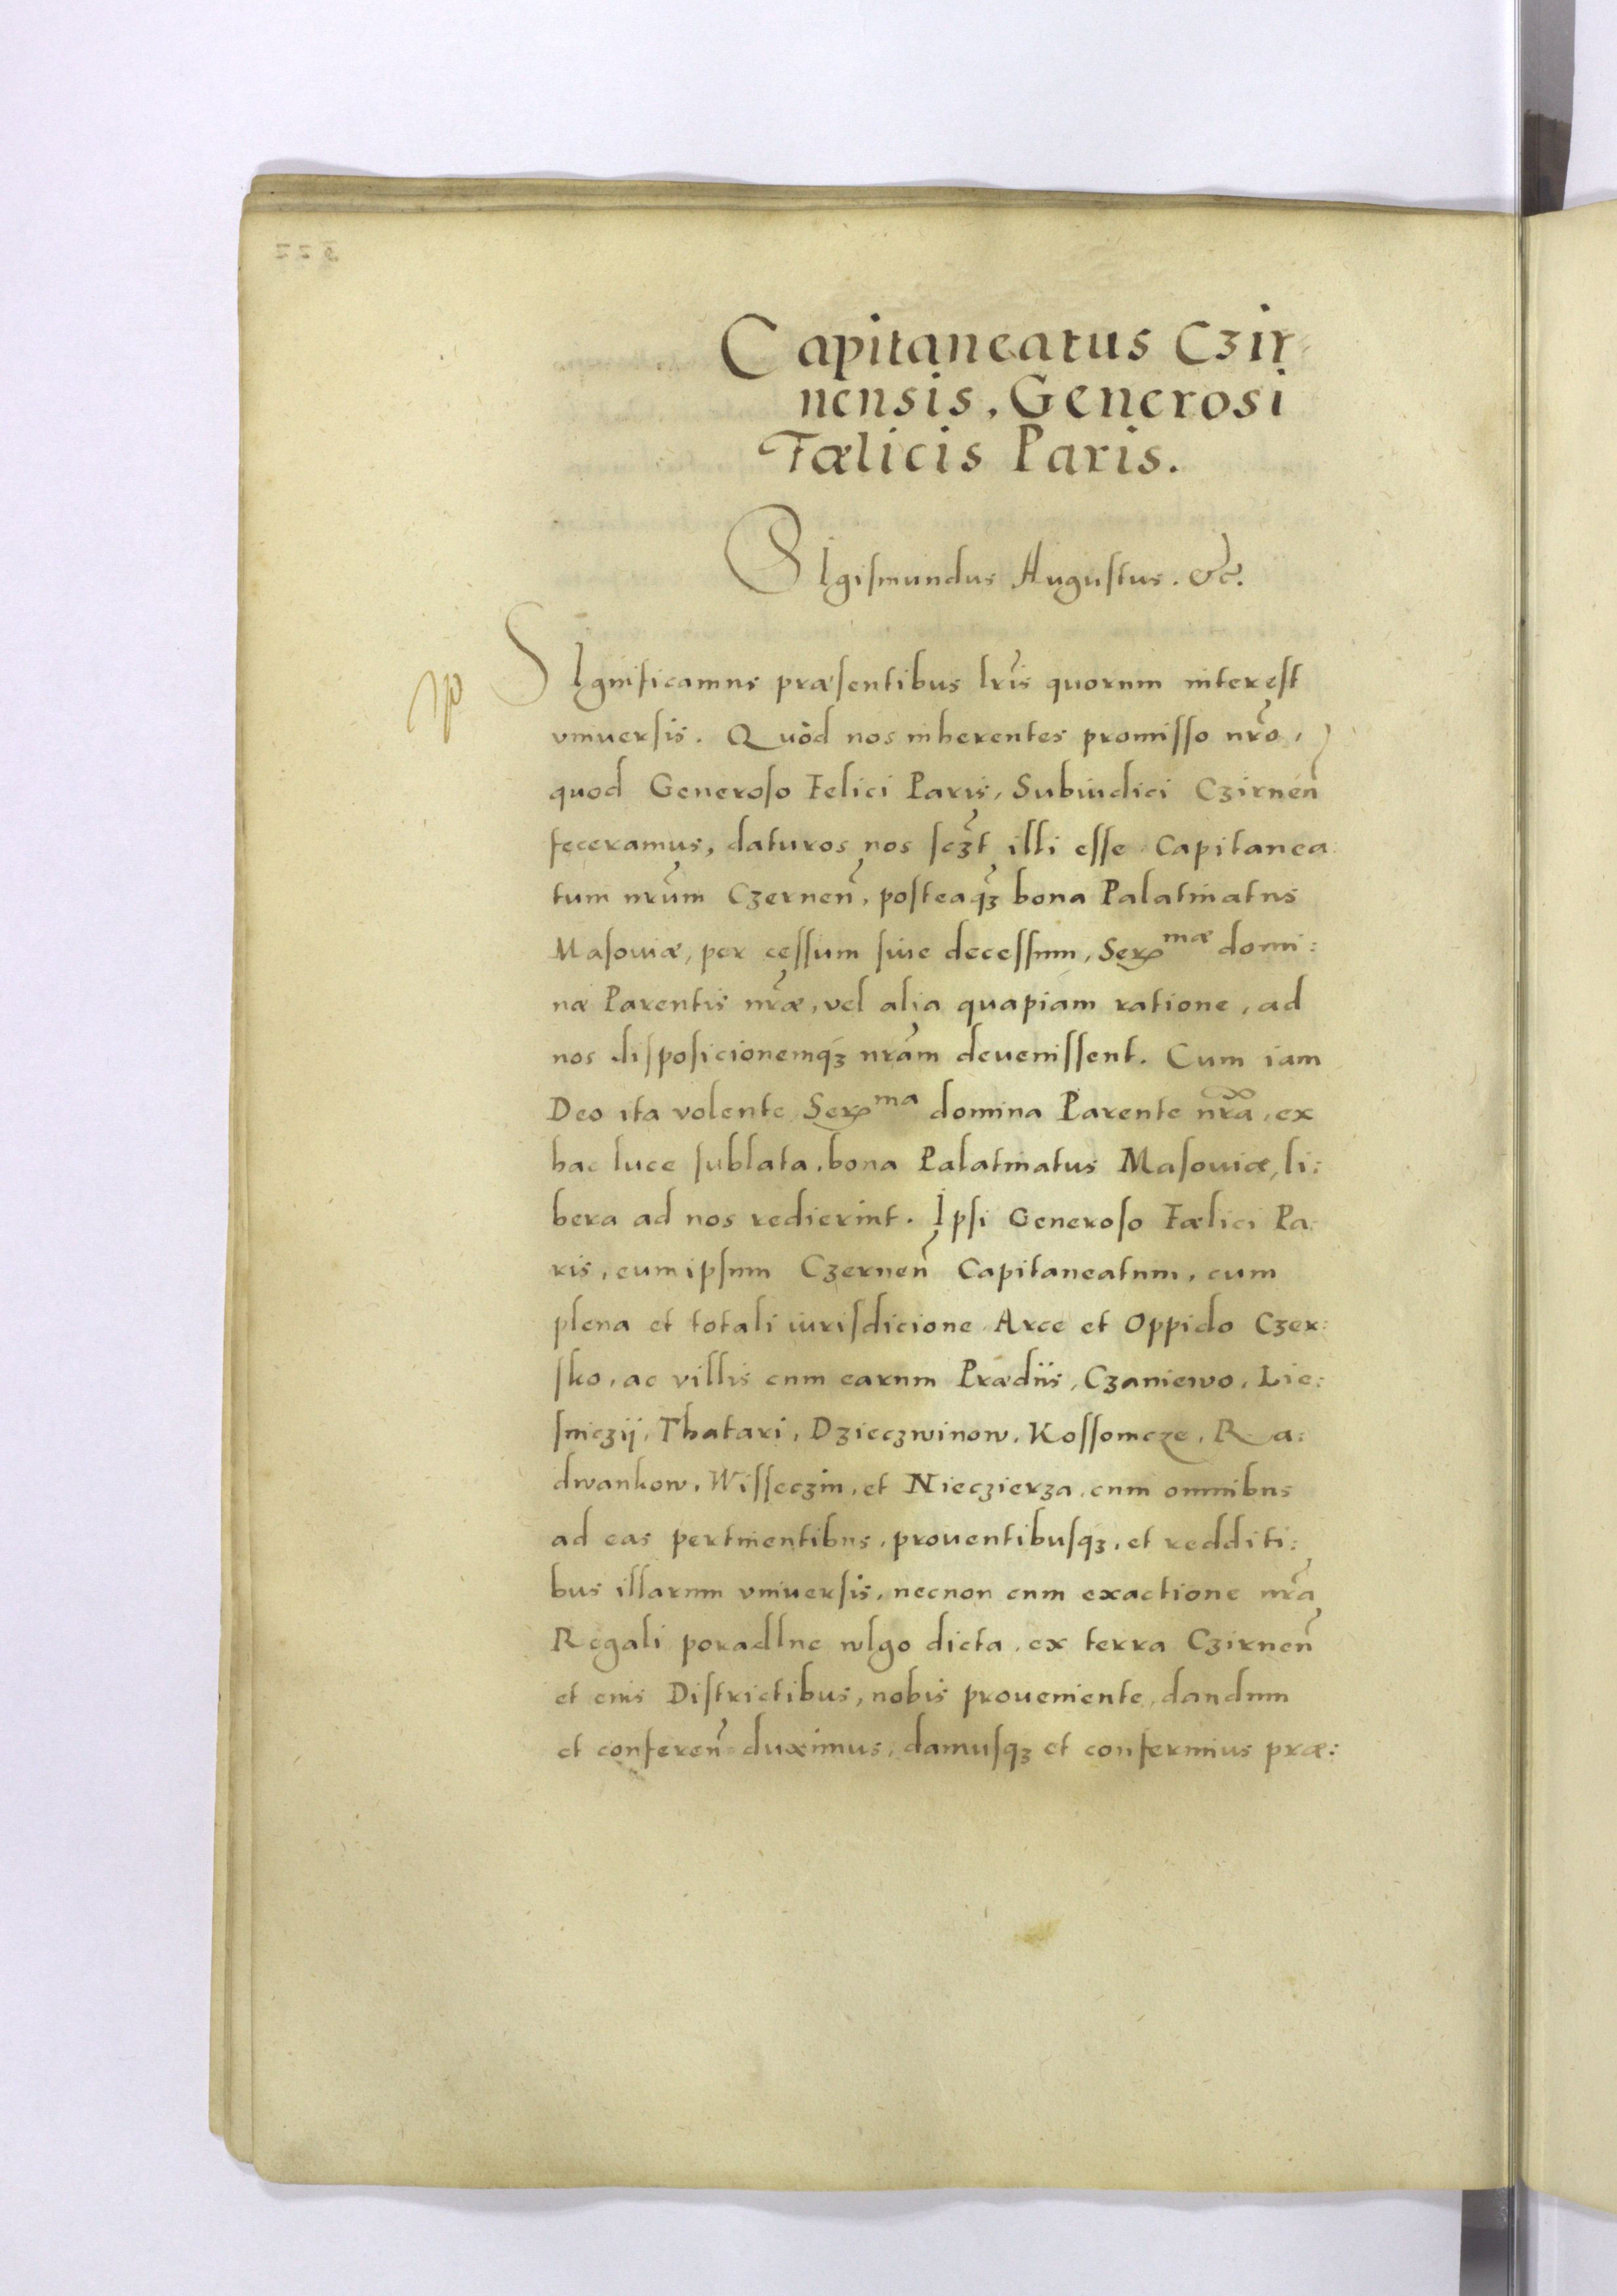 Capitaneatus Czir-
nensis, Generosi
Fælicis Paris.
SIgismundus Augustus. &c.
SIgnificamus præsentibus lris quorum interest
vniuersis. Quòd nos inherentes promisso nro,
quod Generoso Felici Paris, Subiudici Czirnen
feceramus, daturos nos sczt illi esse Capitanea:
tum nrum Czernen, posteaqz bona Palatinatus
Masouiæ, per cessum siue decessum, Ser mæ domi:
næ Parentis nræ, vel alia quapiam ratione, ad
nos disposicionemqz nram deuenissent. Cum iam
Deo ita volente Ser ma domina Parente nra, ex
hac luce sublata, bona Palatinatus Masouiæ, li:
bera ad nos redierint. Ipsi Generoso Fælici Pa:
ris, eum ipsum Czernen Capitaneatum, cum
plena et totali iurisdicione Arce et Oppido Czer:
sko, ac villis cum earum Prædiis, Czaniewo, Lie:
sniczij, Thatari, Dzieczwinow, Kossomcze, Ra:
dwankow, Wisseczin, et Nieczierza, cum omnibus
ad eas pertinentibus, prouentibusqz, et redditi:
bus illarum vniuersis, necnon cum exactione nra
Regali poradlne wlgo dicta, ex terra Czirnen
et eius Districtibus, nobis proueniente, dandum
et conferen duximus, damusqz et conferimus præ: